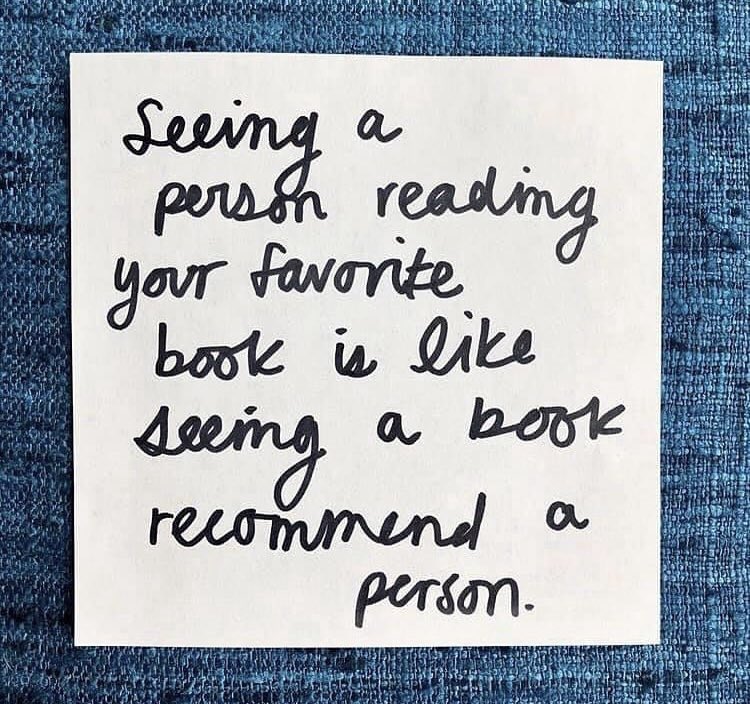 Seeing a
person reading
your favorite
book is like
seeing a book
recommend a
person.